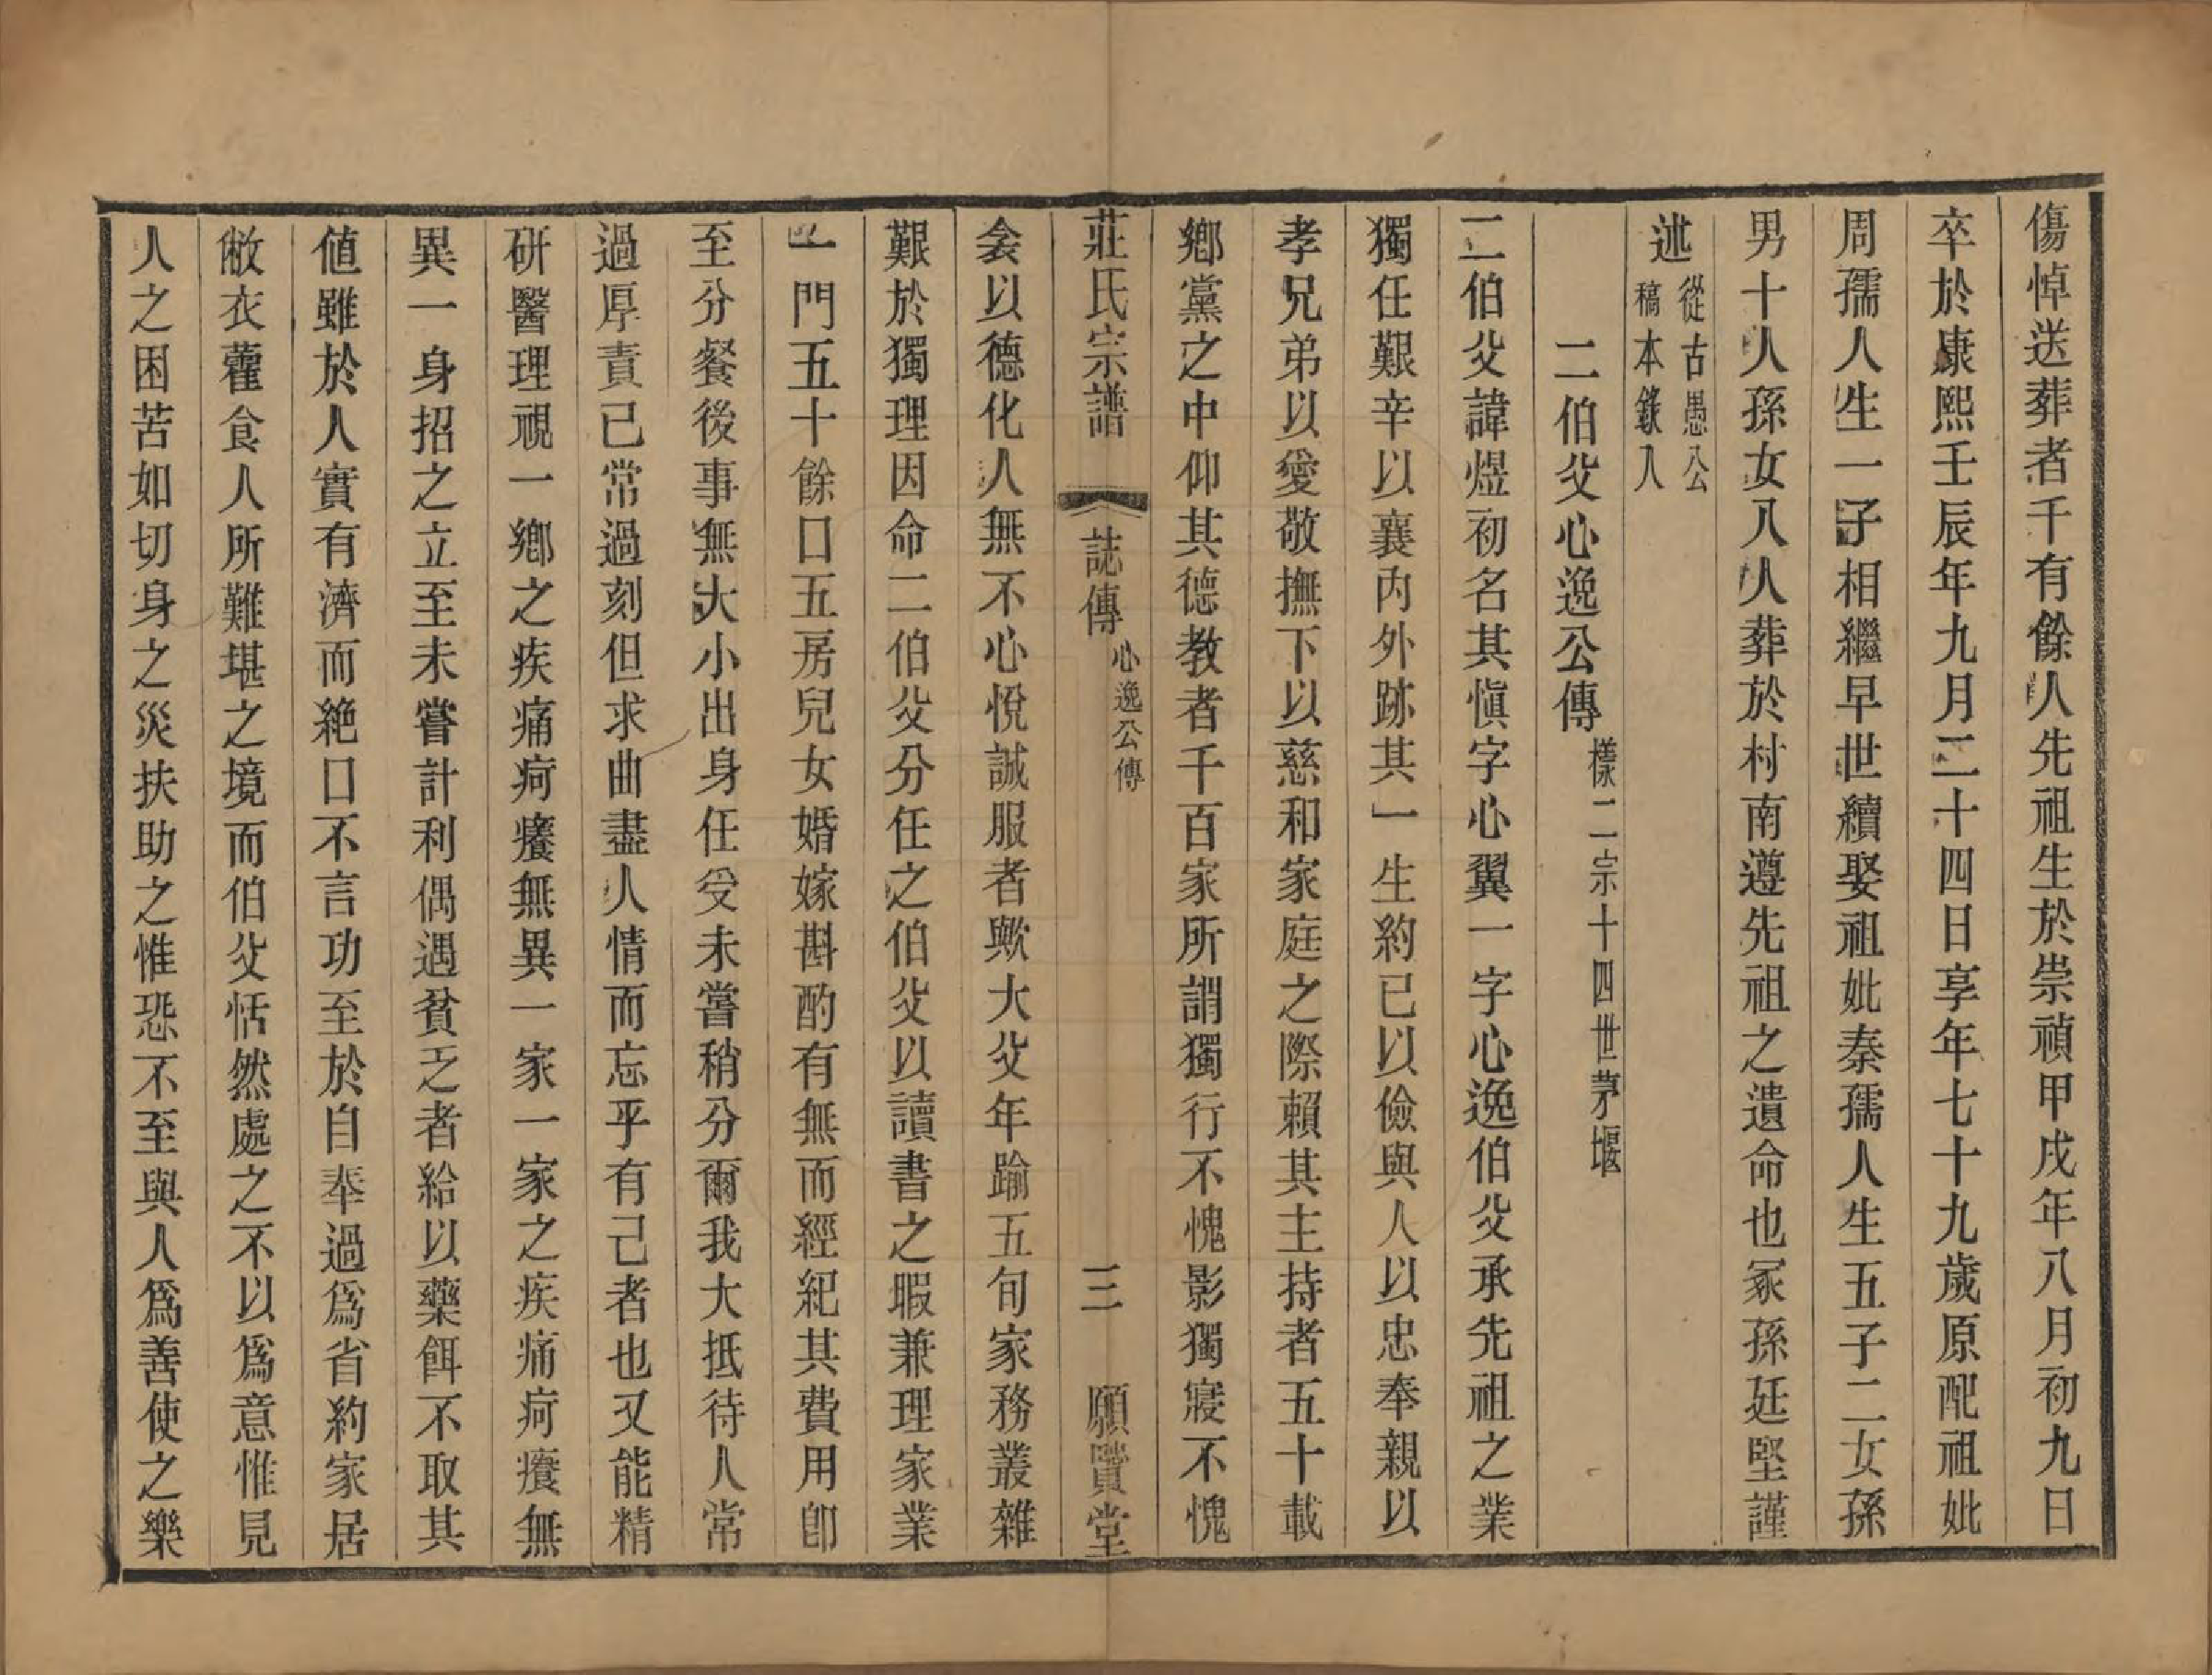 傷悼送葬者千有餘人先祖生於崇禎甲戌年八月初九日
卒於康熙壬辰年九月二十四日享年七十九歲原配祖妣
周孺人生一子相繼早世續娶祖妣秦孺人生五子二女孫
男十人孫女八人葬於村南遵先祖之遺命也冢孫廷堅謹
述從古愚公
稿本錄入
二伯父心逸公傳樣二宗十四世茅堰
二伯父諱煜初名其愼字心翼一字心逸伯父承先祖之業
獨任艱辛以襄內外跡其一生約已以儉與人以忠奉親以
孝兄弟以愛敬撫下以慈和家庭之際賴其主持者五十載
鄉黨之中仰其德教者千百家所謂獨行不愧影獨寢不愧
莊氏宗譜
誌傳心逸公傳
三
願賢堂
衾以德化人無不心悅誠服者歟大父年踰五旬家務叢雜
艱於獨理因命二伯父分任之伯父以讀書之暇兼理家業
一門五十餘口五房兒女婚嫁斟酌有無而經紀其費用卽
至分餐後事無大小出身任受未嘗稍分爾我大抵待人常
過厚責已常過刻但求曲盡人情而忘乎有己者也又能精
研醫理視一鄉之疾痛疴癢無異一家一家之疾痛疴癢無
異一身招之立至未嘗計利偶遇貧乏者給以藥餌不取其
値雖於人實有濟而絕口不言功至於自奉過爲省約家居
敝衣藿食人所難堪之境而伯父恬然處之不以爲意惟見
人之困苦如切身之災扶助之惟恐不至與人爲善使之樂